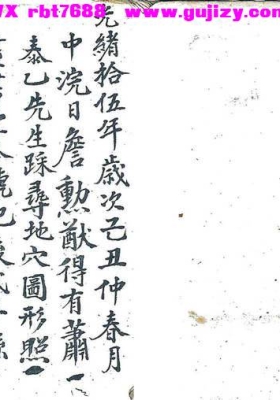 WX rbt7688 www.gujizy.com
光緒拾伍年歲次己丑仲春月
中浣日詹勲猷得有蕭一
泰乙先生踩尋地穴圖形照一